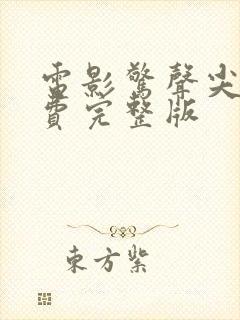 電影驚聲尖
費完整版
東方紫